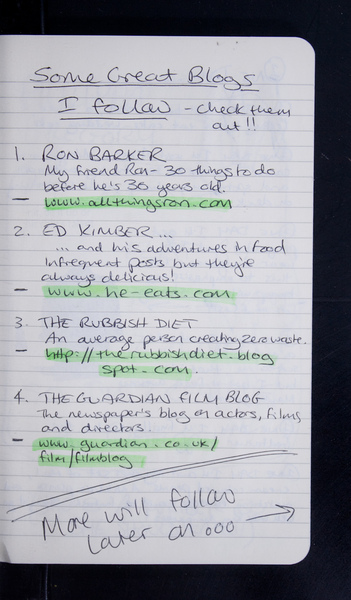 Some Great Blogs
I follow - check them
out!!
1. RON BARKER
My friend Ron - 30 things to do
before he's 30 years old.
- www.allthingsron.com
2. ED KIMBER...
... and his adventures in food
Infrequent posts but they're
always delicious!
- www.he-eats.com
3. THE RUBBISH DIET
An average person creating zero waste.
- http://therubbishdiet.blog
spot.com
4. THE GUARDIAN FILM BLOG
The newspaper's blog on actors, films
and directors
- www.guardian.co.uk/
film/filmblog
More will follow
later on ooo →